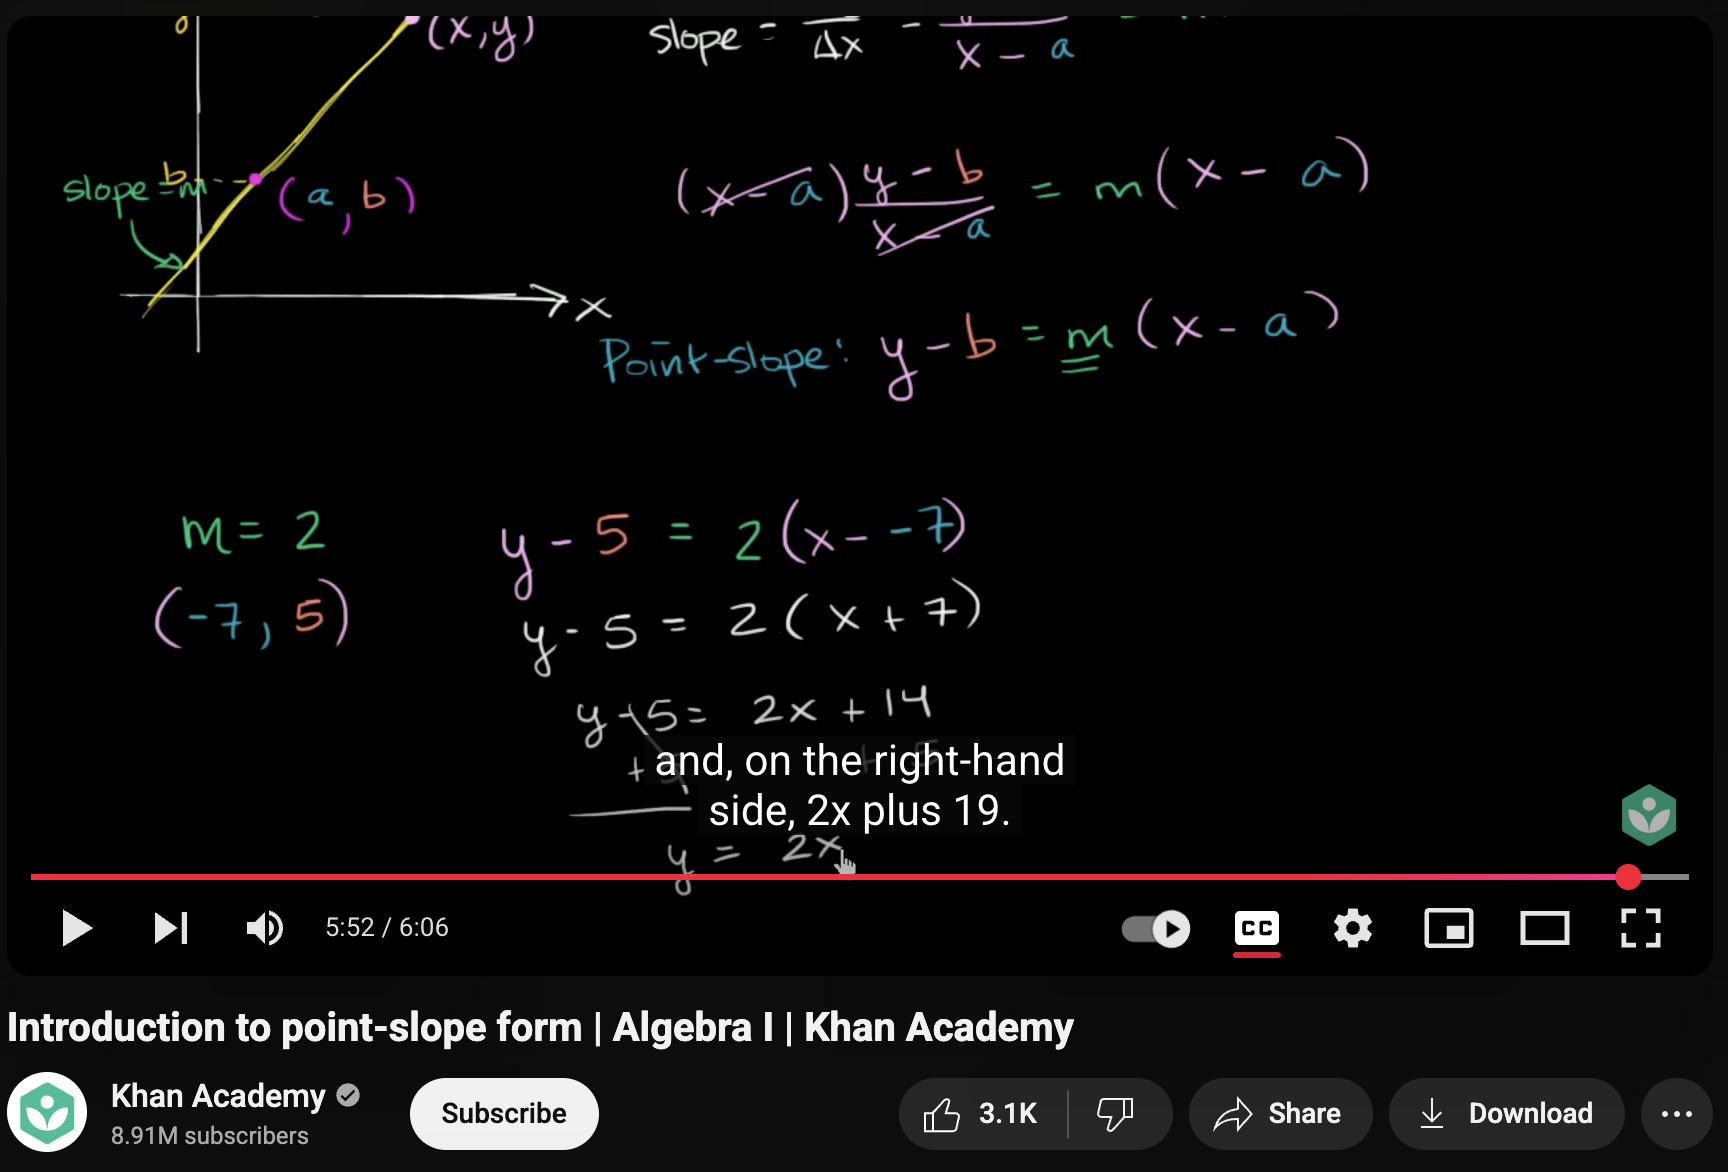 (x,y)
slope = Δx = x - a
b
slope = m
(a, b)
(x - a) y - b / x - a = m(x - a)
x
Point-slope: y - b = m(x - a)
m = 2
y - 5 = 2(x - -7)
(-7, 5)
y - 5 = 2(x + 7)
y - 5 = 2x + 14
+ 5 + 5
and, on the right-hand
side, 2x plus 19.
y = 2x
5:52 / 6:06
CC
Introduction to point-slope form | Algebra I | Khan Academy
Khan Academy
8.91M subscribers
Subscribe
3.1K
Share
Download